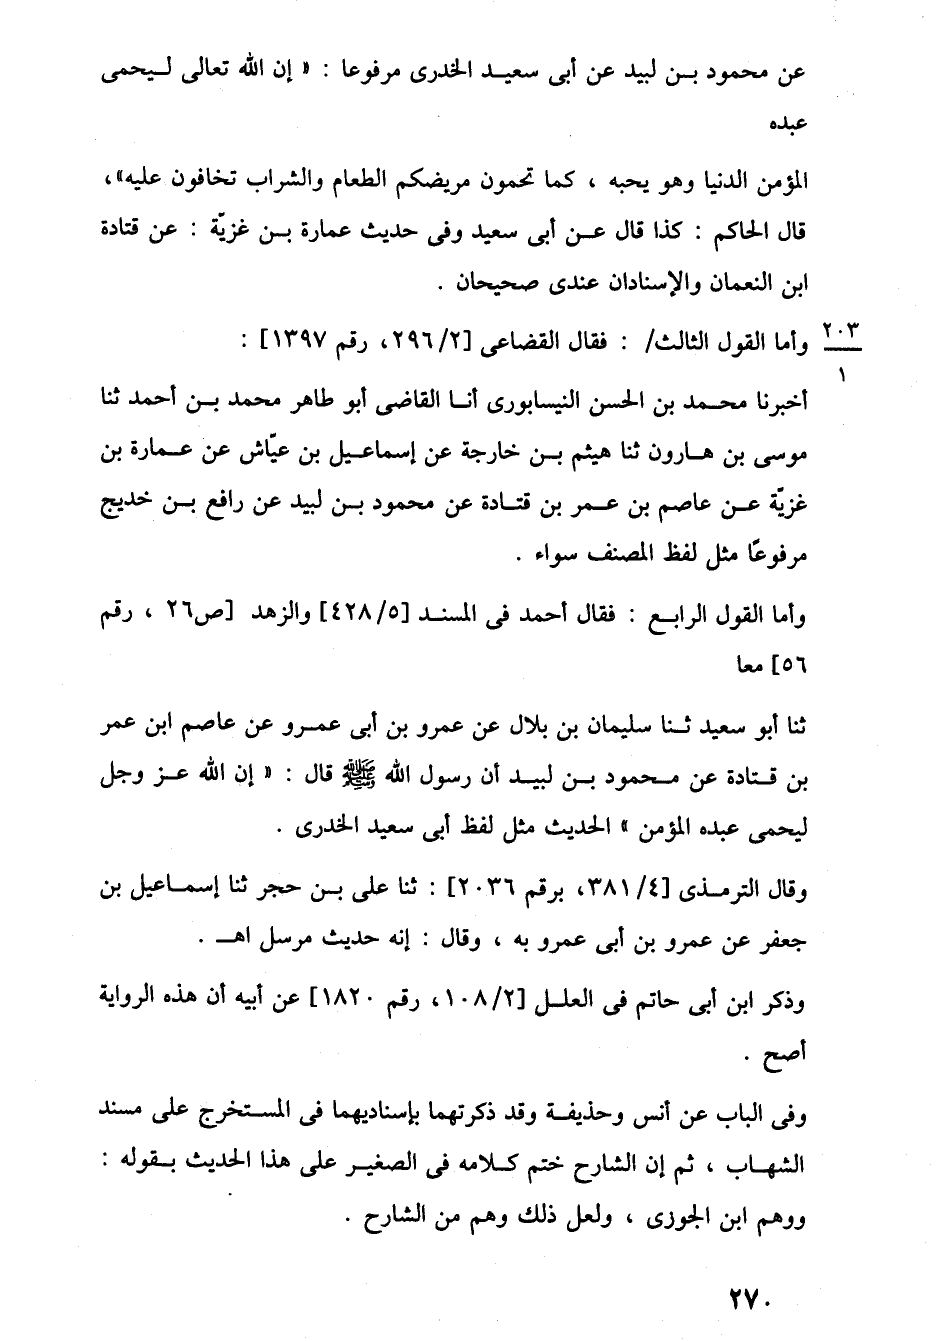 عن محمود بـن لبيد عن أبى سعيـد الخدرى مرفوعا : « إن الله تعالى لـيحمى
عبده
المؤمن الدنيا وهو يحبه ، كما تحمون مريضكم الطعام والشراب تخافون عليه»،
قال الحاكم : كذا قال عـن أبى سعيد وفى حديث عمارة بـن غزيّة : عن قتادة
ابن النعمان والإسنادان عندى صحيحان .
وأما القول الثالث/ : فقال القضاعى [٢٩٦/٢، رقم ١٣٩٧] :
٢٠٣
١
أخبرنا محمـد بن الحسن النيسابورى أنـا القاضى أبو طاهر محمد بـن أحمد ثنا
موسى بن هـارون ثنا هيثم بـن خارجة عن إسماعـيل بن عيّاش عن عـمارة بن
غزيّة عـن عاصم بن عـمر بن قتـادة عن محمود بـن لبيد عن رافع بـن خديج
مرفوعًا مثل لفظ المصنف سواء .
وأما القول الرابـع : فقال أحمد فى المسنـد [٤٢٨/٥] والزهد [ص٢٦ ، رقم
٥٦] معا
ثنا أبو سعيد ثـنا سليمان بن بلال عن عمرو بن أبى عمـرو عن عاصم ابن عمر
بن قـتادة عن مـحمود بـن لبيـد أن رسول الله ﷺ قال : « إن الله عـز وجل
ليحمى عبده المؤمن » الحديث مثل لفظ أبى سعيد الخدرى .
وقال الترمـذى [٣٨١/٤، برقم ٢٠٣٦] : ثنا على بـن حجر ثنا إسمـاعيل بن
جعفر عن عمرو بن أبى عمرو به ، وقال : إنه حديث مرسل اهـ .
وذكر ابن أبى حاتم فى العلـل [١٠٨/٢، رقم ١٨٢٠] عن أبيه أن هذه الرواية
أصح .
وفى الباب عن أنس وحذيفـة وقد ذكرتهما بإسناديهما فى المستخرج على مسند
الشهـاب ، ثم إن الشارح ختم كـلامه فى الصغيـر على هذا الحديث بـقوله :
ووهم ابن الجوزى ، ولعل ذلك وهم من الشارح .
٢٧٠